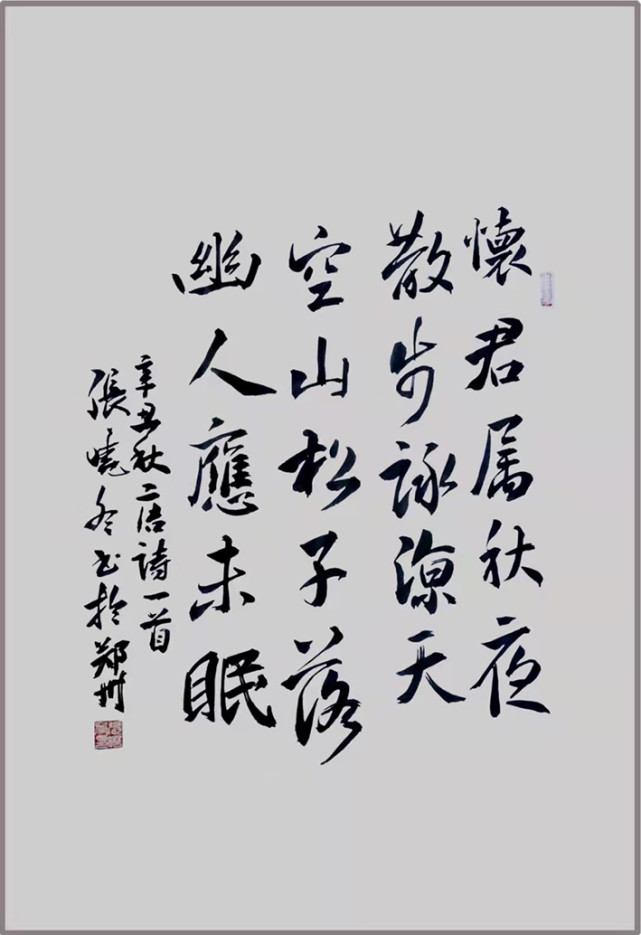 懷君属秋夜
散步詠涼天
空山松子落
幽人應未眠
辛丑秋二居詩一首
張曉冬书於鄭州